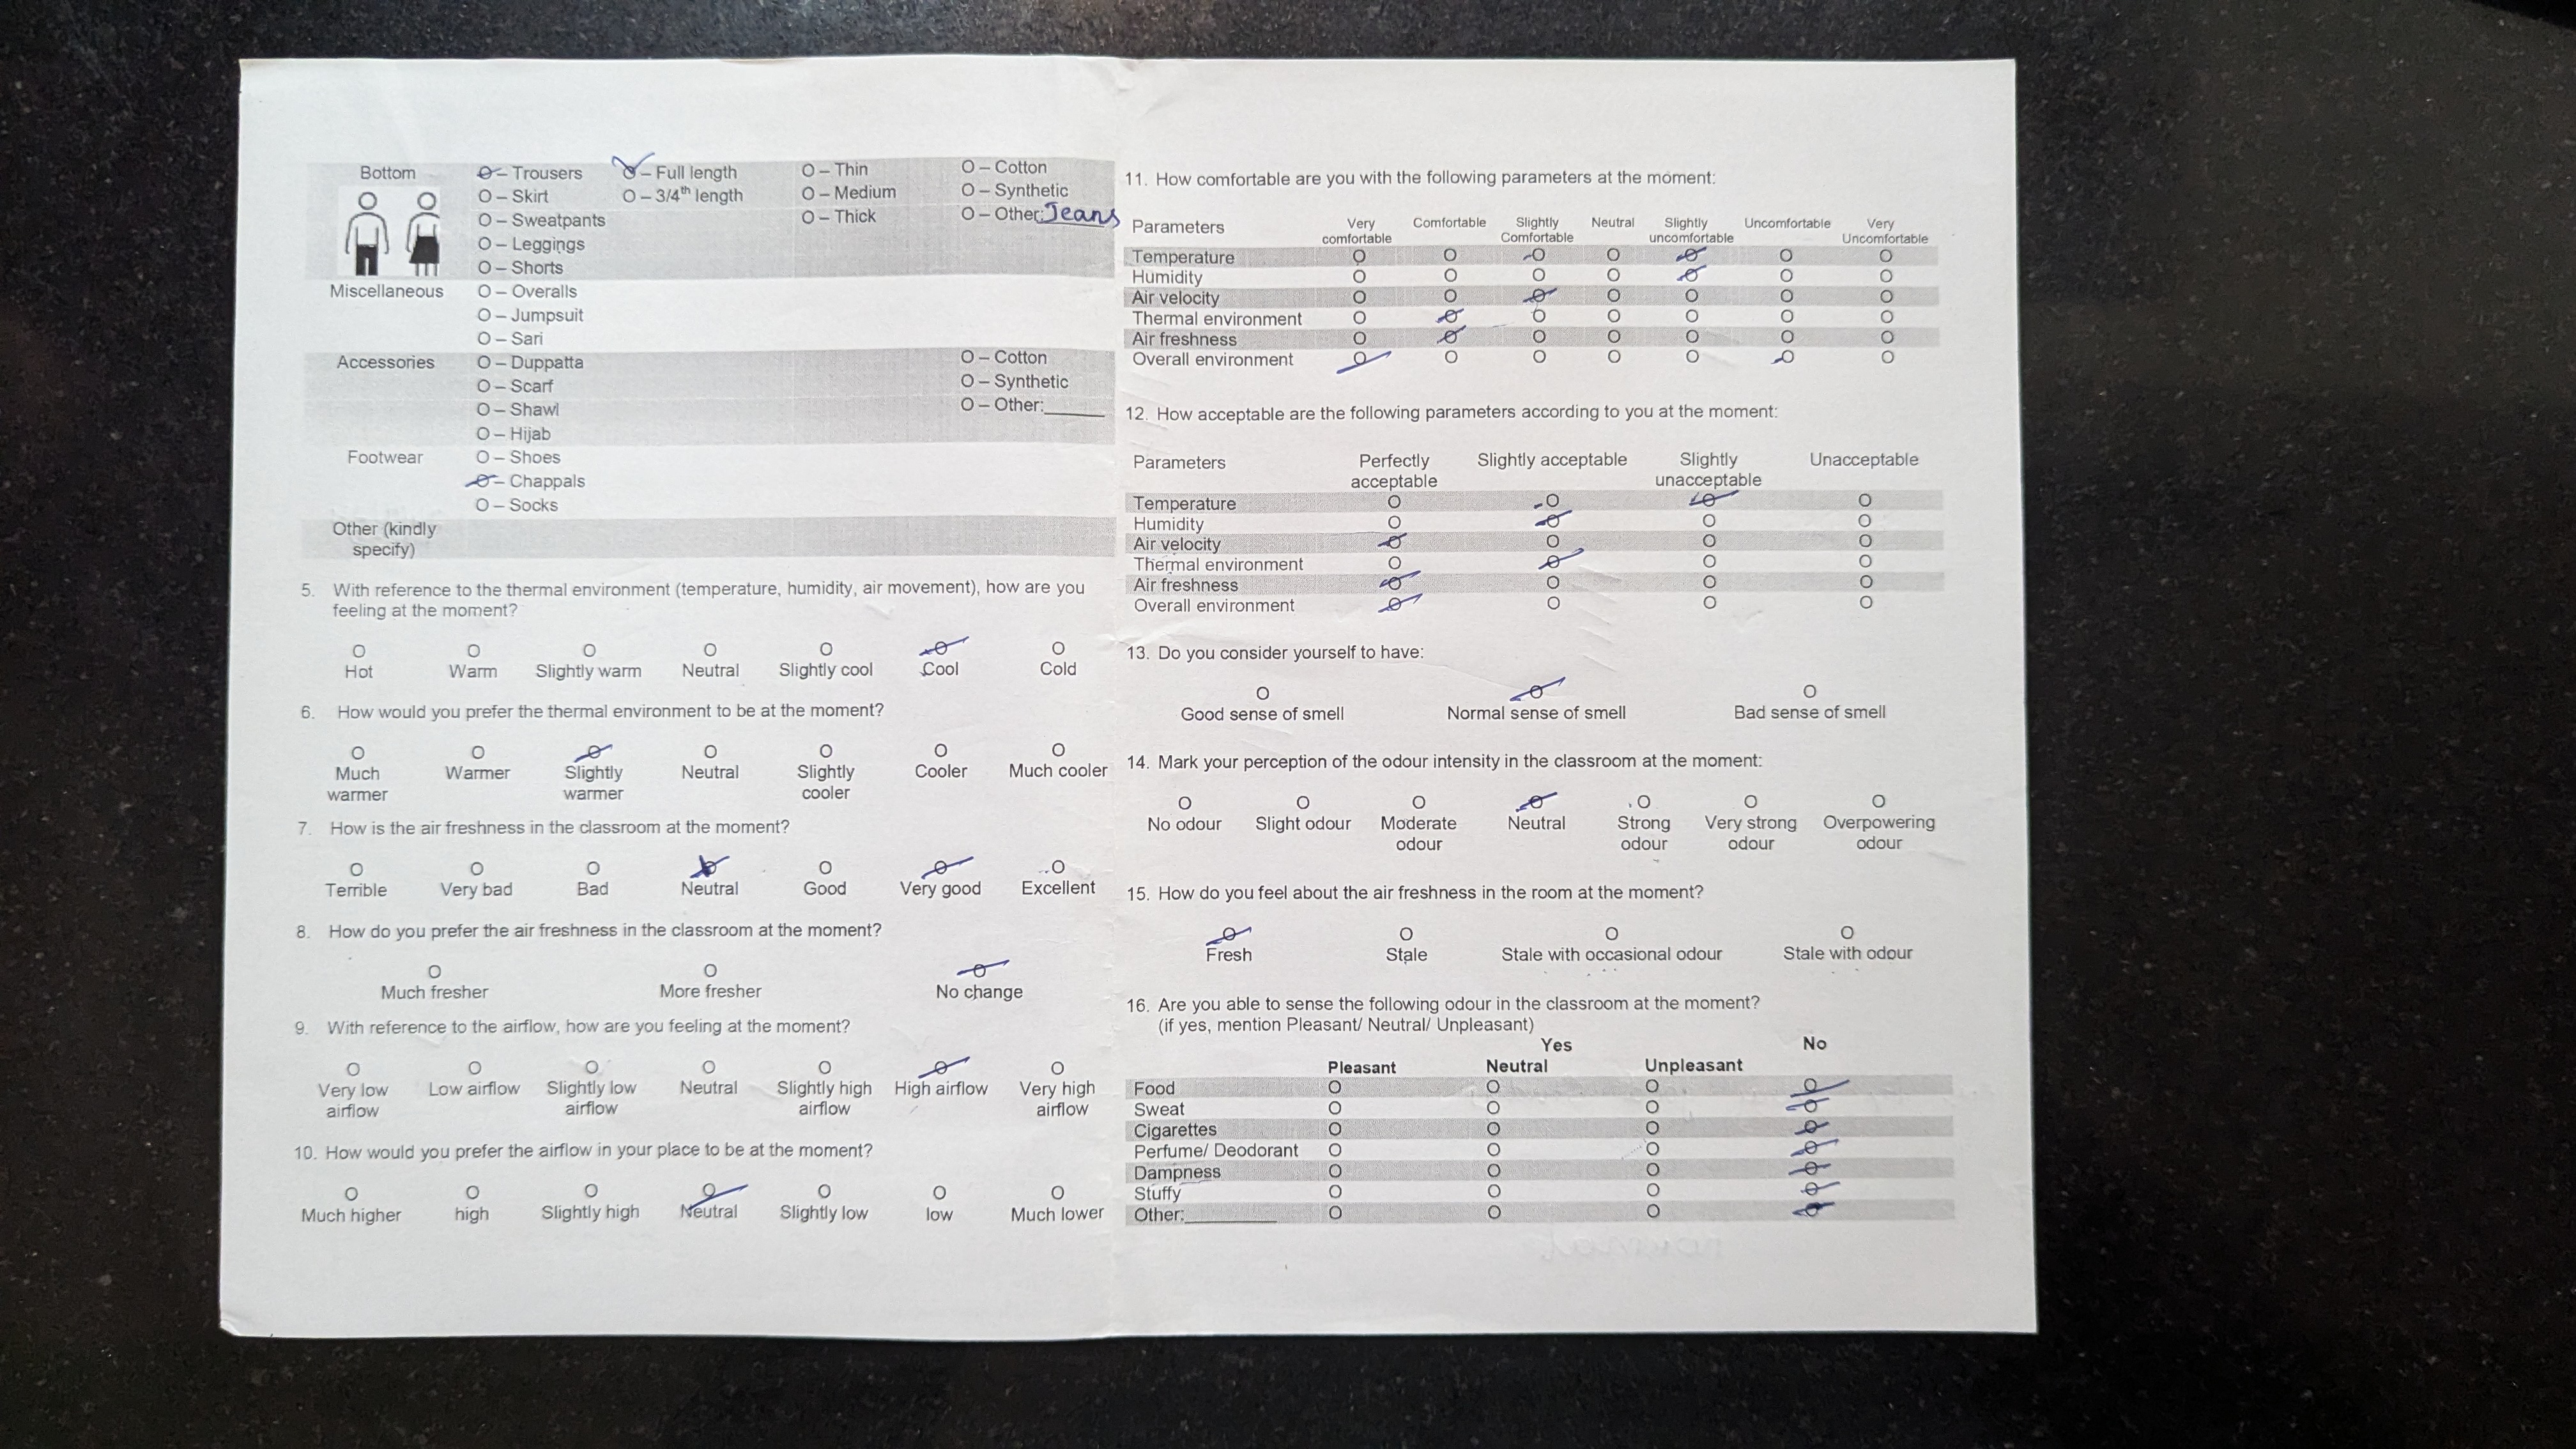 Bottom O – Trousers O – Full length O – Thin O – Cotton
O – Skirt O – 3/4th length O – Medium O – Synthetic
O – Sweatpants O – Thick O – Other: Jeans
O – Leggings
O – Shorts
Miscellaneous O – Overalls
O – Jumpsuit
O – Sari
Accessories O – Duppatta O – Cotton
O – Scarf O – Synthetic
O – Shawl O – Other:______
O – Hijab
Footwear O – Shoes
O – Chappals
O – Socks
Other (kindly
specify)
5. With reference to the thermal environment (temperature, humidity, air movement), how are you
feeling at the moment?
O O O O O O O
Hot Warm Slightly warm Neutral Slightly cool Cool Cold
6. How would you prefer the thermal environment to be at the moment?
O O O O O O O
Much Warmer Slightly Neutral Slightly Cooler Much cooler
warmer warmer cooler
7. How is the air freshness in the classroom at the moment?
O O O O O O O
Terrible Very bad Bad Neutral Good Very good Excellent
8. How do you prefer the air freshness in the classroom at the moment?
O O O
Much fresher More fresher No change
9. With reference to the airflow, how are you feeling at the moment?
O O O O O O O
Very low Low airflow Slightly low Neutral Slightly high High airflow Very high
airflow airflow airflow airflow
10. How would you prefer the airflow in your place to be at the moment?
O O O O O O O
Much higher high Slightly high Neutral Slightly low low Much lower
11. How comfortable are you with the following parameters at the moment:
Parameters Very Comfortable Slightly Neutral Slightly Uncomfortable Very
comfortable Comfortable uncomfortable Uncomfortable
Temperature O O O O O O O
Humidity O O O O O O O
Air velocity O O O O O O O
Thermal environment O O O O O O O
Air freshness O O O O O O O
Overall environment O O O O O O O
12. How acceptable are the following parameters according to you at the moment:
Parameters Perfectly Slightly acceptable Slightly Unacceptable
acceptable unacceptable
Temperature O O O O
Humidity O O O O
Air velocity O O O O
Thermal environment O O O O
Air freshness O O O O
Overall environment O O O O
13. Do you consider yourself to have:
O O O
Good sense of smell Normal sense of smell Bad sense of smell
14. Mark your perception of the odour intensity in the classroom at the moment:
O O O O O O O
No odour Slight odour Moderate Neutral Strong Very strong Overpowering
odour odour odour odour
15. How do you feel about the air freshness in the room at the moment?
O O O O
Fresh Stale Stale with occasional odour Stale with odour
16. Are you able to sense the following odour in the classroom at the moment?
(if yes, mention Pleasant/ Neutral/ Unpleasant)
Yes No
Pleasant Neutral Unpleasant
Food O O O O
Sweat O O O O
Cigarettes O O O O
Perfume/ Deodorant O O O O
Dampness O O O O
Stuffy O O O O
Other:_________ O O O O